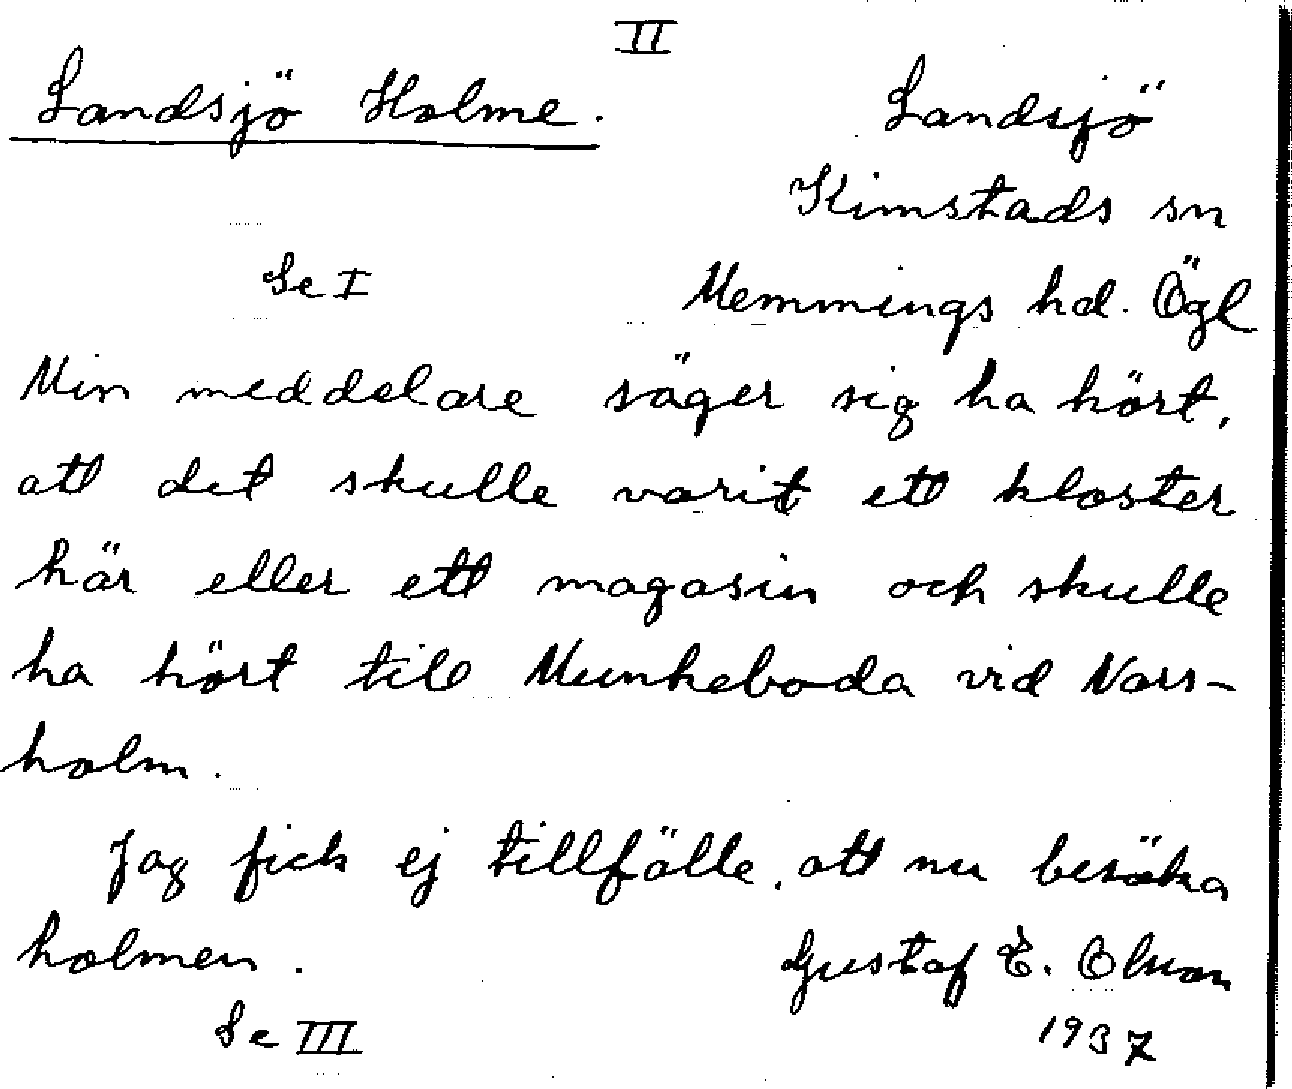 II
Landsjö Holme.
Landsjö
Kimstads sn
Se I
Memmings hd. Ögl
Min meddelare säger sig ha hört,
att det skulle varit ett kloster
här eller ett magasin och skulle
ha hört till Munkeboda vid Nors-
holm.
Jag fick ej tillfälle, att nu besöka
holmen.
Gustaf E. Olson
Se III
1937